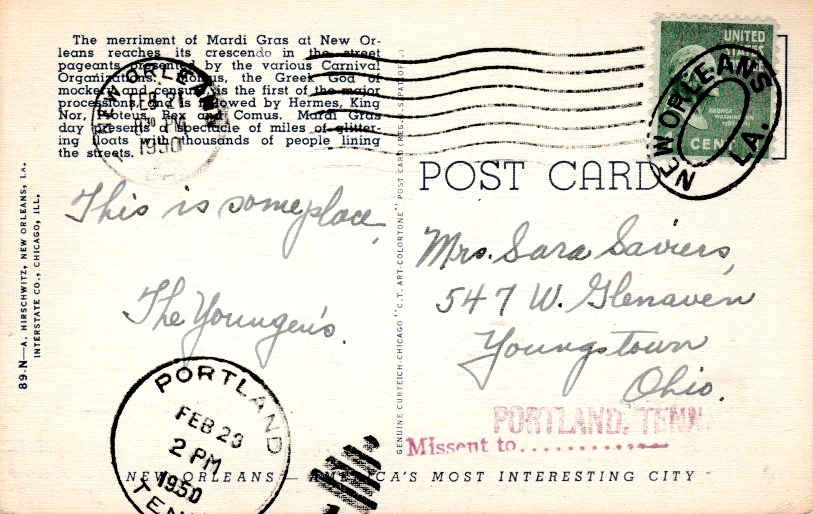 The merriment of Mardi Gras at New Or-
leans reaches its crescendo in the street
pageants presented by the various Carnival
Organizations. Momus, the Greek God of
mockery and censure, is the first of the major
processions, and is followed by Hermes, King
Nor, Proteus, Rex and Comus. Mardi Gras
day presents a spectacle of miles of glitter-
ing floats with thousands of people lining
the streets.
NEW ORLEANS
FEB 21
PM
1950
UNITED
STATES
GEORGE
WASHINGTON
CENT
NEW ORLEANS
LA.
POST CARD
This is some place,
The Youngen's.
Mrs. Sara Saviers,
547 W. Glenaven
Youngstown
Ohio.
PORTLAND, TENN.
Missent to.............
PORTLAND
FEB 23
2 PM
1950
TENN
NEW ORLEANS — AMERICA'S MOST INTERESTING CITY
89-N—A. HIRSCHWITZ, NEW ORLEANS, LA.
INTERSTATE CO., CHICAGO, ILL.
GENUINE CURTEICH-CHICAGO "C.T. ART-COLORTONE" POST CARD (REG. U.S. PAT. OFF.)